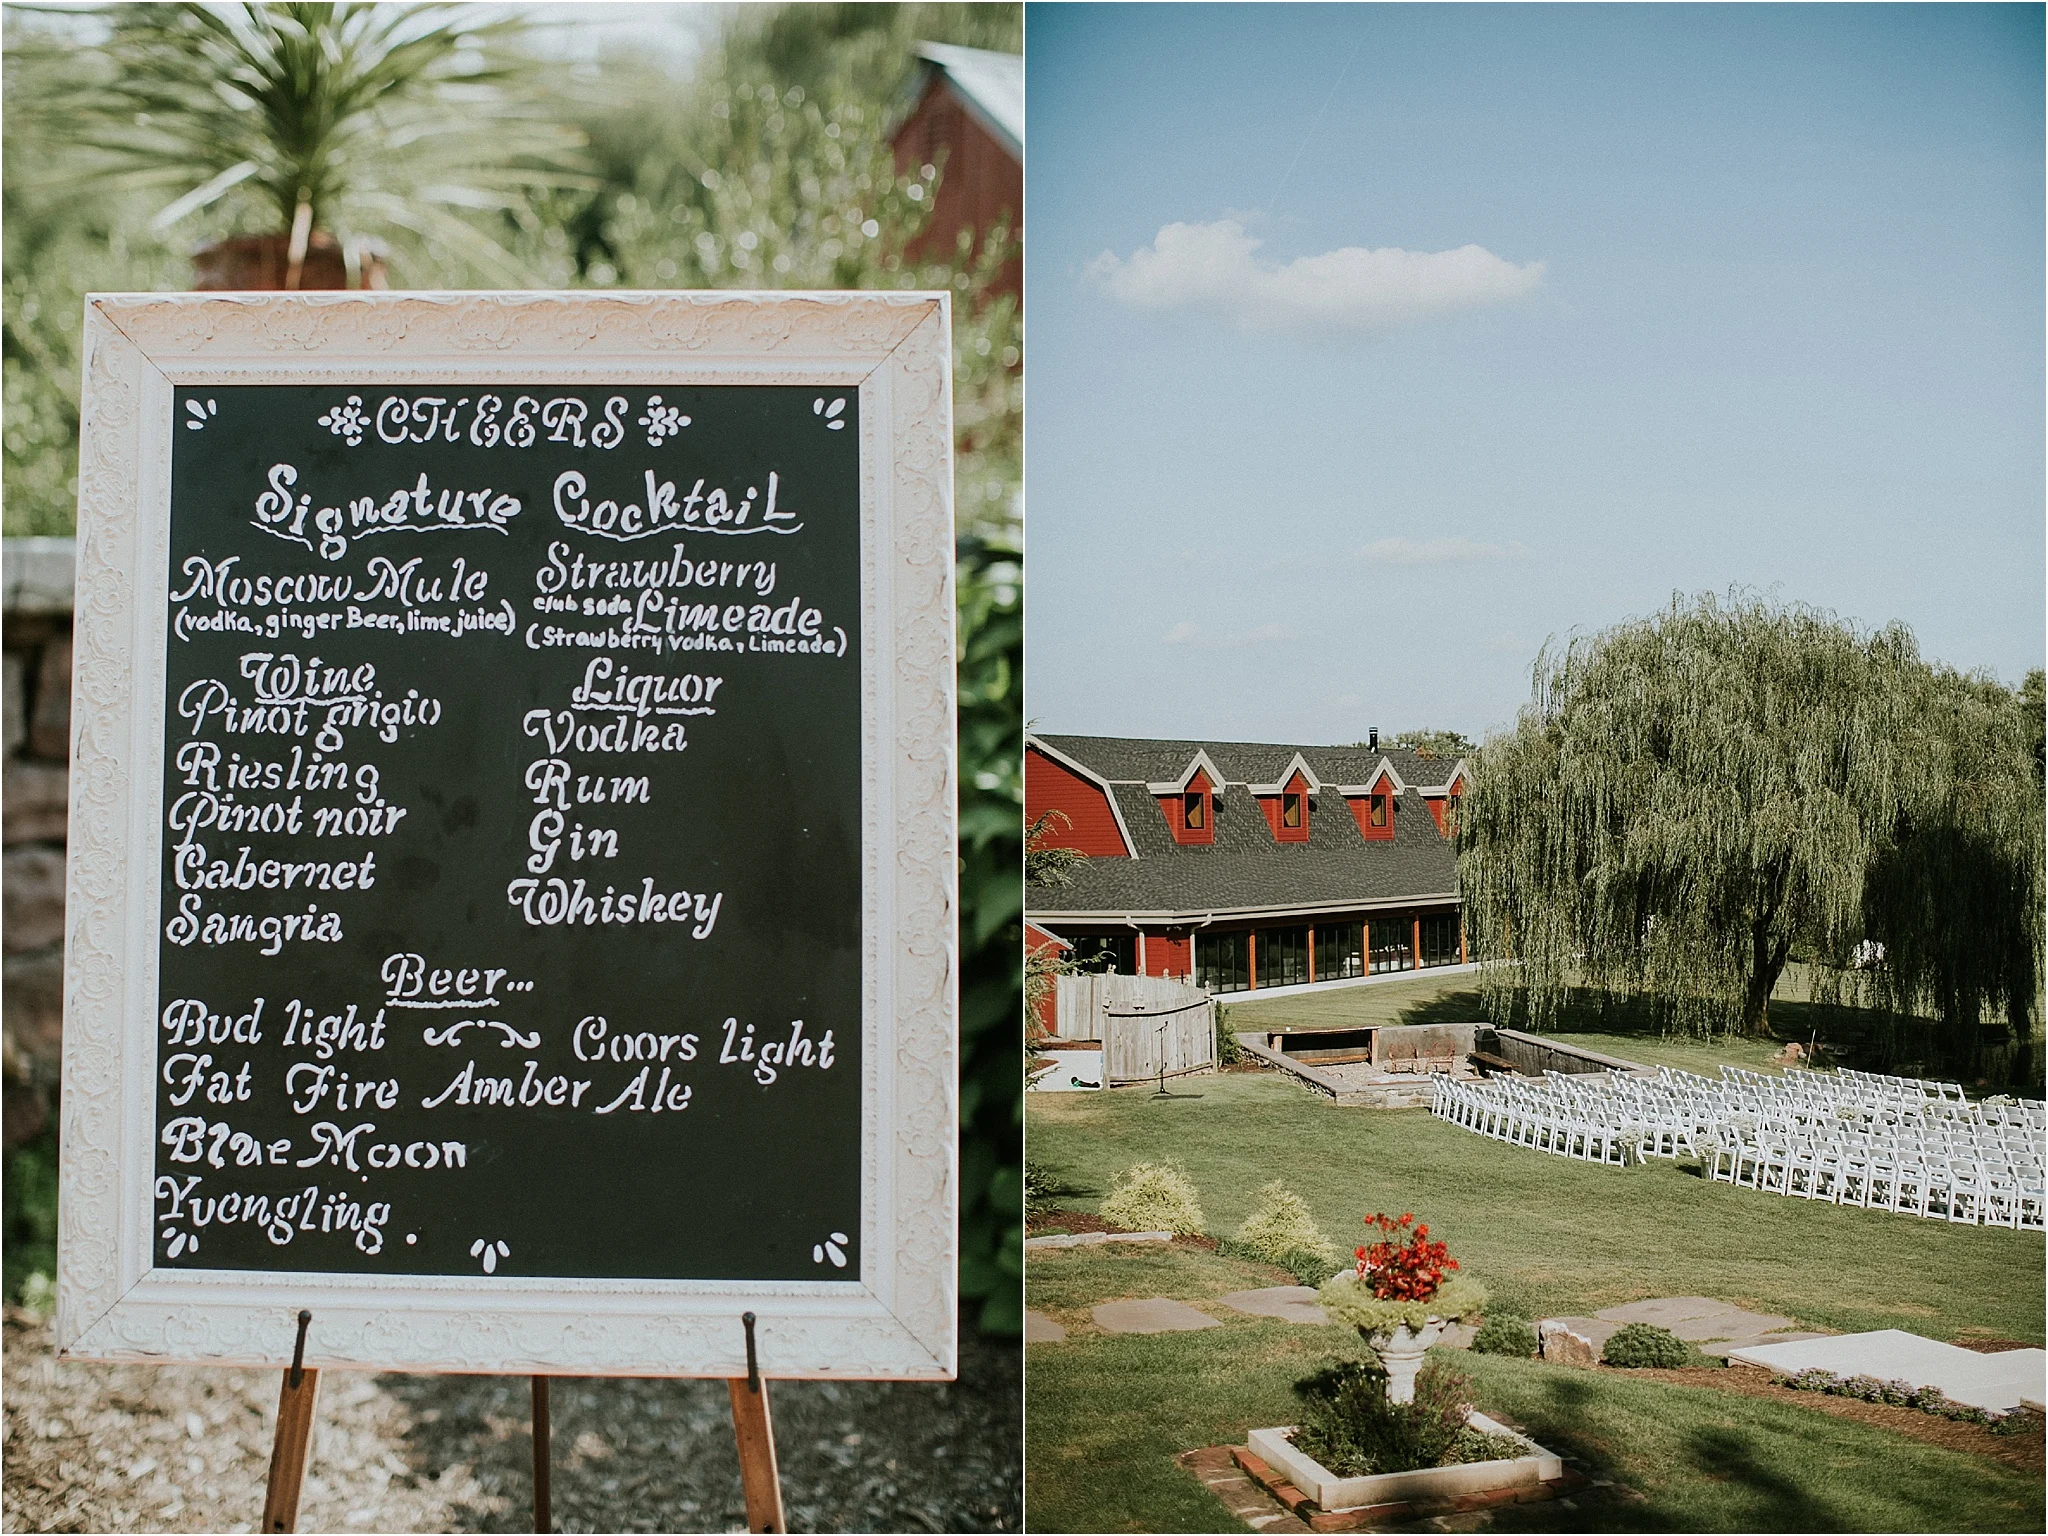 CHEERS
Signature Cocktail
Moscow Mule
(vodka, ginger Beer, lime juice)
Strawberry
club soda, Limeade
(Strawberry vodka, Limeade)
Wine
Pinot grigio
Riesling
Pinot noir
Cabernet
Sangria
Liquor
Vodka
Rum
Gin
Whiskey
Beer...
Bud light Coors light
Fat Fire Amber Ale
Blue Moon
Yuengliing.